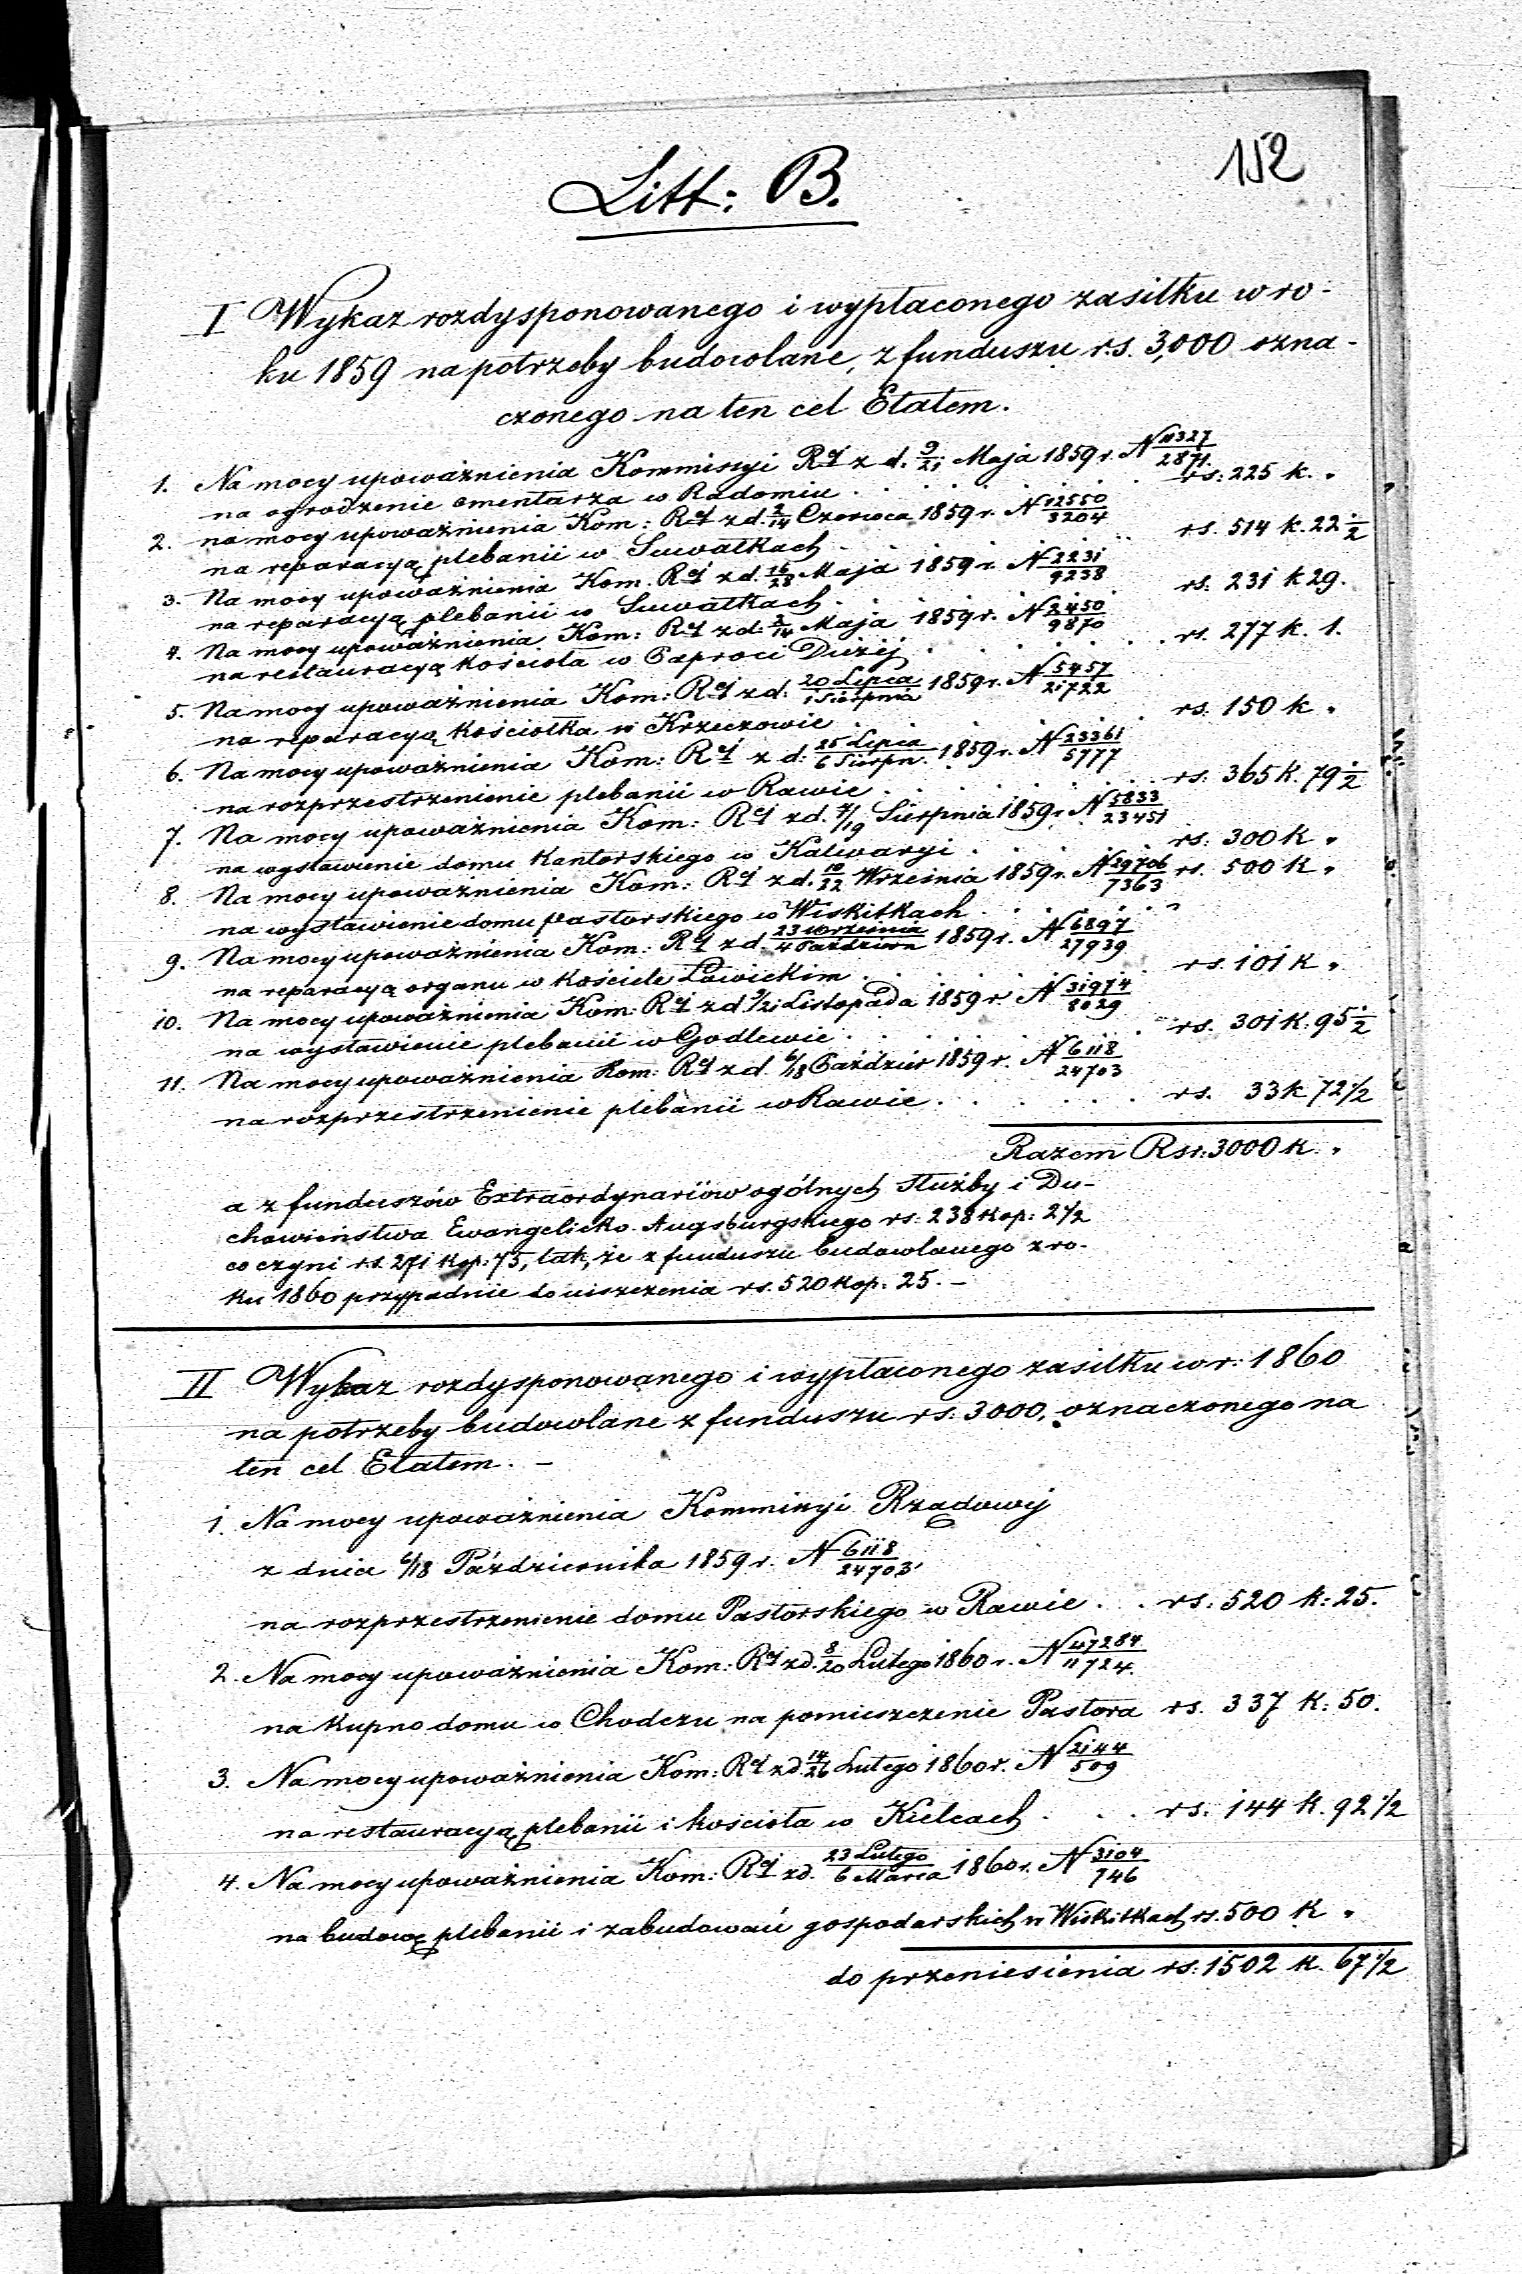 152
Litt: B.
I Wykaz rozdysponowanego i wypłaconego zasiłku w ro-
ku 1859 na potrzeby budowlane, z funduszu r.s. 3,000 ozna-
czonego na ten cel Etatem.
1. Na mocy upoważnienia Kommissyi Rej z d. 9/21 Maja 1859 r. N 11327/2871
na ogrodzenie cmentarza w Radomiu . . . . . . rs: 225 k. "
2. na mocy upoważnienia Kom: Rej z d. 2/14 Czerwca 1859 r. N 12550/3204
na reparacyą plebanii w Suwałkach . . . . . rs. 514 k. 22 1/2
3. Na mocy upoważnienia Kom. Rej z d. 16/28 Maja 1859 r. N 2231/9238
na reparacyą plebanii w Suwałkach . . . . . rs: 231 k 29.
4. Na mocy upoważnienia Kom: Rej z d: 2/14 Maja 1859 r. N 2450/9870
na restauracyą kościoła w Paproci Dużéj . . . . . rs. 277 k. 1.
5. Na mocy upoważnienia Kom: Rej z d: 20 Lipca/1 Sierpnia 1859 r. N 5457/21722
na reparacyą kościołka w Krzeczowie . . . . . rs: 150 k "
6. Na mocy upoważnienia Kom: Rej z d: 25 Lipca/6 Sierpn. 1859 r. N 23361/5777
na rozprzestrzenienie plebanii w Rawie . . . . . rs: 365 k. 79 1/2
7. Na mocy upoważnienia Kom: Rej z d. 7/19 Sierpnia 1859 r N 5833/23451
na wystawienie domu Kantorskiego w Kalwaryi . . . . rs: 300 k "
8. Na mocy upoważnienia Kom: Rej z d. 10/22 Września 1859 r. N 29706/7363 rs. 500 k "
na wystawienie domu Pastorskiego w Wiskitkach . . . . "
9. Na mocy upoważnienia Kom: Rej z d. 23 Września/4 Paździer 1859 r. N 6897/27939
na reparacyą organu w kościele Łowickim . . . . . rs. 101 k "
10. Na mocy upoważnienia Kom: Rej z d 9/21 Listopada 1859 r N 31974/8029
na wystawienie plebanii w Godlewie . . . . . rs. 301 k: 95 1/2
11. Na mocy upoważnienia Kom: Rej z d. 6/18 Paździer 1859 r. N 6118/24703
na rozprzestrzenienie plebanii w Rawie . . . . . . rs. 33 k 72 1/2
Razem Rsr: 3000 k. "
a z funduszów Extraordynariów ogólnych Służby i Du-
chowieństwa Ewangelicko-Augsburgskiego rs: 238 kop: 2 1/2
co czyni rs 271 kop: 75, tak, że z funduszu budowlanego z ro-
ku 1860 przypadnie do uiszczenia rs. 520 kop: 25. –
II Wykaz rozdysponowanego i wypłaconego zasiłku w r: 1860
na potrzeby budowlane z funduszu rs: 3000, oznaczonego na
ten cel Etatem. –
1. Na mocy upoważnienia Kommissyi Rządowéj
z dnia 6/18 Października 1859 r. N 6118/24703,
na rozprzestrzenienie domu Pastorskiego w Rawie . . rs: 520 k: 25.
2. Na mocy upoważnienia Kom: Rej z d. 8/20 Lutego 1860 r. N 47284/11724
na kupno domu w Chodczu na pomieszczenie Pastora rs. 337 k: 50.
3. Na mocy upoważnienia Kom: Rej z d. 14/26 Lutego 1860 r. N 2144/509
na restauracyą plebanii i kościoła w Kielcach . . . rs. 144 k. 92 1/2
4. Na mocy upoważnienia Kom: Rej z d. 23 Lutego/6 Marca 1860 r. N 3104/746
na budowę plebanii i zabudowań gospodarskich w Wiskitkach rs. 500 k "
do przeniesienia rs: 1502 k. 67 1/2